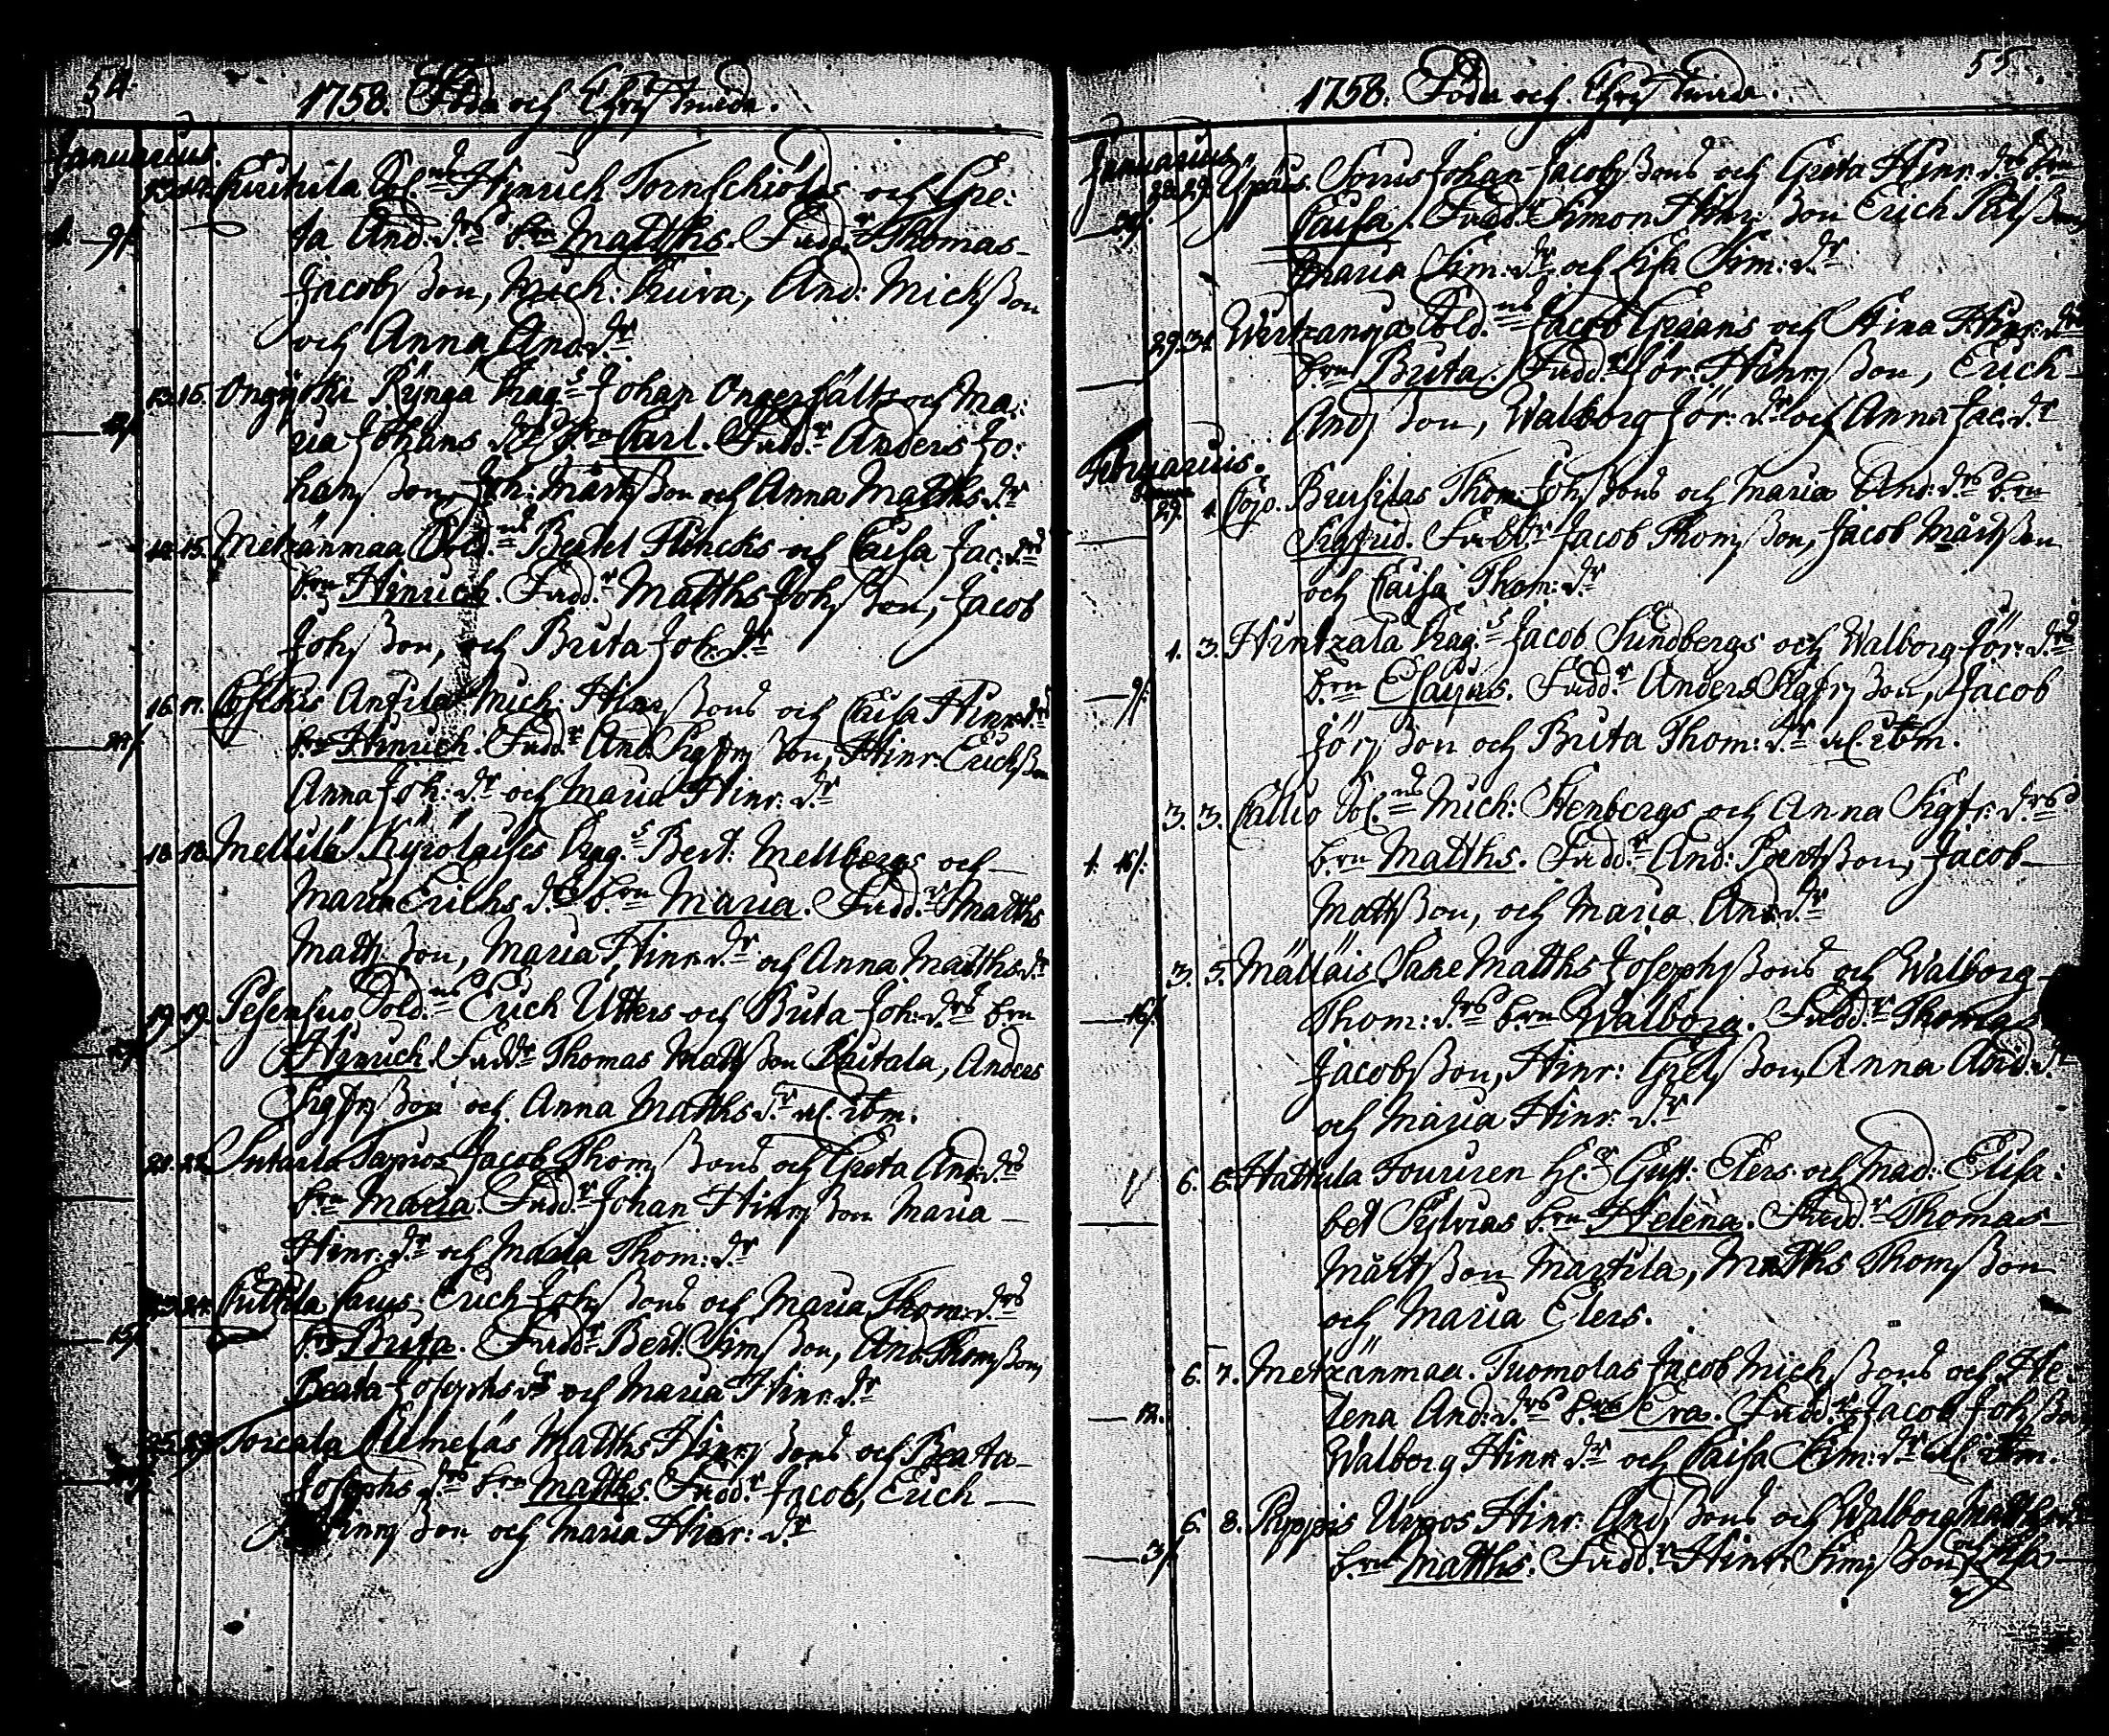 54.
1758. Föda och Christnade.
Januarius.
13. 14. Curikila Sol:ns Hinrich Tornschiölds och Gre:
1. 9/. ta And:d:rs b:rn Matths. Fadd:r Thomas
Jacobsson, Mich: Kuiva, And: Micksson
och Anna And:d:r
13. 15. Ongijoki Rÿngä Drag:s Johan Ongerfälts och Ma:
ria Johans d:rs b:rn Carl. Fadd:r Anders Jo:
hansson, Joh: Märtsson och Anna Matths d:r
14. 15. Metzänmaa Sold:ns Bertel Flincks och Caisa Jac:d:rs
b:rn Hinrich. Fadd:r Matths Johsson, Jacob
Johsson, och Brita Joh:d:r
16. 17. Anfila Mich: Hinrssons och Caisa Hinr:d:rs
b:rn Hinrich. Fadd:r And: Sigfrsson, Hinr: Erichsson
Anna Joh:d:r och Maria Hinr:d:r
18. 18. Mellilä Kÿrölaises Drag:s Bert: Mellbergs och
Maria Erichs d:rs b:rn Maria. Fadd:r Matths
Mattsson, Maria Hinr:d:r och Anna Matths d:r
19. 19. Pesensuo Sold:ns Erich Utters och Brita Joh:d:rs b:rn
Hinrich. Fadd:r Thomas Mattsson Pautala, Anders
Sigfrsson och Anna Matths d:r al. ibm.
21. 22. Sutarla Tapios Jacob Thomssons och Greta And:d:rs
b:rn Maria. Fadd:r Johan Hinrsson Maria
Hinr:d:r och Maria Thom:d:r
23. 24. Puttila Erich Johssons och Maria Thom:d:rs
15/. b:rn Brita. Fadd:r Bert: Simsson, And: Thomsson,
Beata Josephs d:r och Maria Hinr:d:r
25. Torcala Matths Hinrssons och Beata
Josephs d:rs b:rn Matths. Fadd:r Jacob, Erich
Hinrsson och Maria Hinr:d:r
55.
1758. Föda och Christnade.
Januarius.
28. 29. Ypäis. Johan Jacobssons och Greta Hinr:d:rs b:rn
Caisa. Fadd:r Simon Hinr:sson Erich Pålsson
Maria Sim:d:r och Lisa Sim:d:r
29. 31. Wirtzanoja Sold:ns Jacob Graans och Stina Hinr:d:rs
b:rn Brita. Fadd:r Jör: Hinrsson, Erich
Andsson, Walborg Jör:d:r och Anna Jac:d:r
Februarius.
29. 1. Cojo. Bursilas Thom: Johssons och Maria And:d:rs b:rn
Sigfrid. Fadd:r Jacob Thomsson, Jacob Märtsson
och Caisa Thom:d:r
1. 3. Hintzala Drag:s Jacob Sundbergs och Walborg Jör:d:rs
9/. b:rn Esaijas. Fadd:r Anders Sigfrsson, Jacob
Jörsson och Brita Thom:d:r al. ibm.
3. 3. Callio Sol:ns Mich: Stenbergs och Anna Sigfr:d:rs
b:rn Matths. Fadd:r And: Bertsson, Jacob
Mattsson, och Maria And:d:r
3. 5. Mälläis Sake Matths Josephssons och Walborg
16/. Thom:d:rs b:rn Walborg. Fadd:r Thomas
Jacobsson, Hinr: Grelsson, Anna And:d:r
och Maria Hinr:d:r
6. 6. Hattula Fouriren H:r Gust: Elers och Mad: Elisa:
bet Sylvias b:rn Helena. Fadd:r Thomas
Märtsson Martila, Matths Thomsson
och Maria Elers.
6. 7. Metzänmaa. Tuomolas Jacob Michssons och He:
12. lena And:d:rs b:rn Eva. Fadd:r Jacob Johsson
Walborg Hinr:d:r och Caisa Sim:d:r al. ibm.
6. 8. Pyppis Urpos Hinr: Andssons och Walborg Matths d:rs
3/. b:rn Matths. Fadd:r Hinr: Simsson, och Lisa